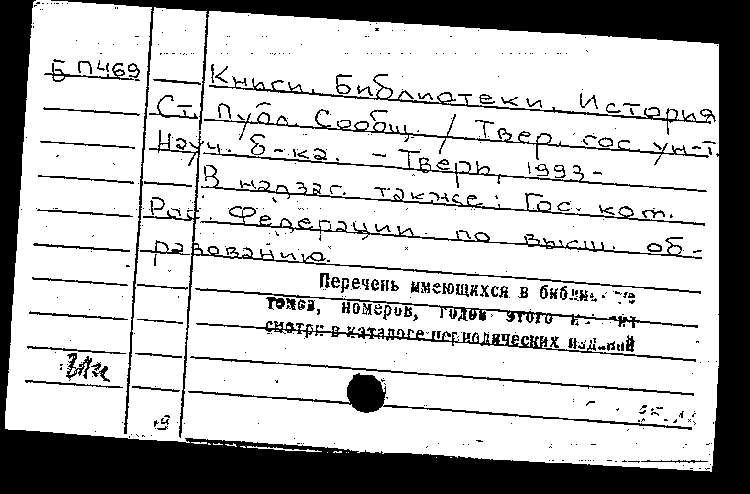 Б П469 Книги. Библиотеки. История
Ст. Публ. Сообщ. / Твер. гос. ун-т.
Науч. б-ка. - Тверь, 1993-
В надзаг. также: Гос. ком.
Рос. Федерации по высш. об-
разованию.
Перечень имеющихся в
томов, номеров, годов этого
смотри в каталоге периодических изданий